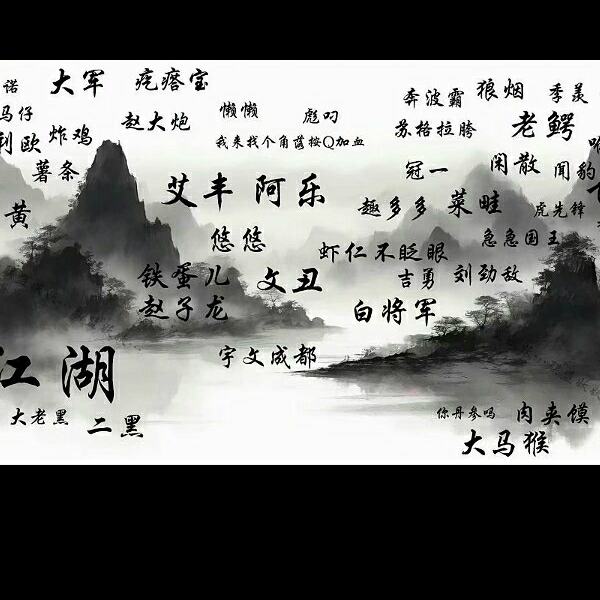 诺
大军
疙瘩宝
马仔
利欧
炸鸡
赵大炮
懒懒
彪叼
我来找个角落按Q加血
奔波霸
狼烟
季羡
苏格拉胯
老鳄
薯条
冠一
闲散
闻豹
艾丰
阿乐
趣多多
菜畦
虎先锋
黄
悠悠
虾仁不眨眼
急急国王
铁蛋儿
文丑
吉勇
刘劲敌
赵子龙
白将军
江湖
宇文成都
大老黑
二黑
你丹参吗
肉夹馍
大马猴